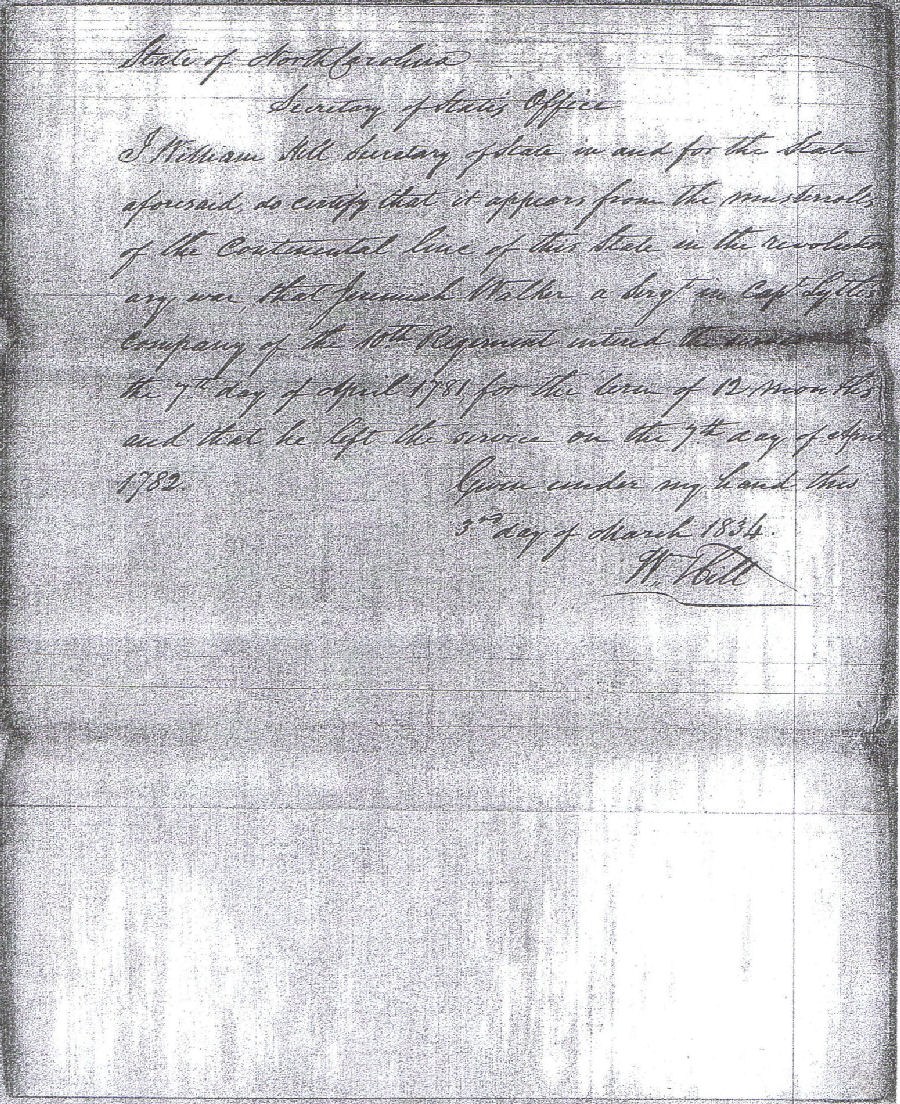 State of North Carolina
Secretary of State's Office
I William Hill Secretary of State in and for the State
aforesaid, do certify that it appears from the musterrolls
of the Continental line of this State in the revolution
ary war, that Jeremiah Walker a Sergt in Capt Lytles
Company of the 10th Regiment entered the service
the 7th day of April 1781, for the term of 12 months
and that he left the service on the 7th day of April
1782. Given under my hand this
3rd day of March 1834.
W. Hill